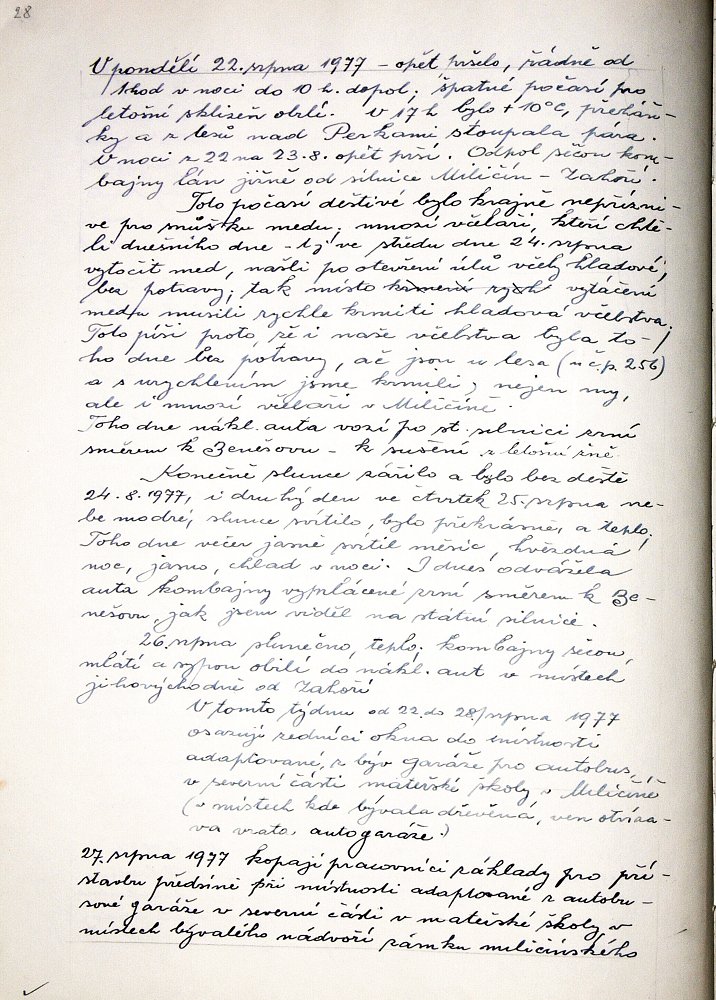 28
V pondělí 22. srpna 1977 - opět pršelo, řádně od
1 hod v noci do 10 h. dopol; špatné počasí pro
letošní sklizeň obilí. V 17 h bylo + 10°C, přeháň-
ky a z lesů nad Perkami stoupala pára.
V noci z 22 na 23.8. opět prší. Odpol. sečou kom-
bajny lán jižně od silnice Miličín - Zahoří.
Toto počasí deštivé bylo krajně nepřízni-
vé pro snůšku medu; mnozí včelaři, kteří chtě-
li dnešního dne - tj ve středu dne 24. srpna
vytočit med, našli po otevření úlů včely hladové,
bez potravy; tak místo vytáčení
medu musili rychle krmiti hladová včelstva.
Toto píši proto, že i naše včelstva byla to-
ho dne bez potravy, ač jsou u lesa (u č.p. 256)
a s urychlením jsme krmili; nejen my,
ale i mnozí včelaři v Miličíně.
Toho dne nákl. auta vozí po st. silnici zrní
směrem k Benešovu - k sušení z letošní žně.
Konečně slunce zářilo a bylo bez deště
24.8.1977, i druhý den ve čtvrtek 25. srpna ne-
be modré, slunce svítilo, bylo překrásně, a teplo;
Toho dne večer jasně svítil měsíc, hvězdná
noc, jasno, chlad v noci. I dnes odvážela
auta kombajny vymlácené zrní směrem k Be-
nešovu, jak jsem viděl na státní silnici.
26. srpna slunečno, teplo; kombajny sečou,
mlátí a sypou obilí do nákl. aut v místech
jihovýchodně od Zahoří
V tomto týdnu od 22. do 28./srpna 1977
osazují zedníci okna do místnosti
adaptované, z býv garáže pro autobus,
v severní části mateřské školy v Miličíně
(v místech kde bývala dřevěná, ven otvíra-
va vrata autogaráže.)
27. srpna 1977 kopají pracovníci základy pro pří-
stavbu předsíně při místnosti adaptované z autobu-
sové garáže v severní části v mateřské školy v
místech bývalého nádvoří zámku miličínského